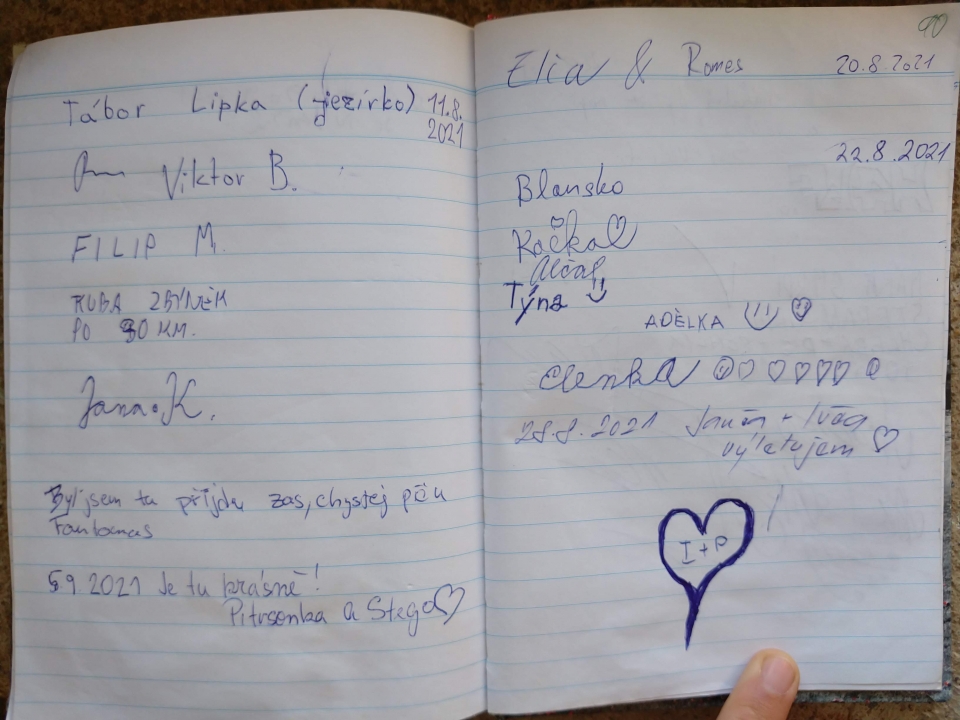 Tábor Lipka (jezírko) 11.8.
2021
Viktor B.
FILIP M.
KUBA ZBYNĚK
PO 30 KM.
Jana K.
Byl jsem tu příjdu zas, chystej péču
Fantomas
5 9 2021 Je tu krásně!
Pitrsonka a Stego
90
Elia & Romes 20.8.2021
22.8.2021
Blansko
Kačka
Týna
ADÉLKA
Elenka
28.8.2021 + Ivča
výletujem
I+P